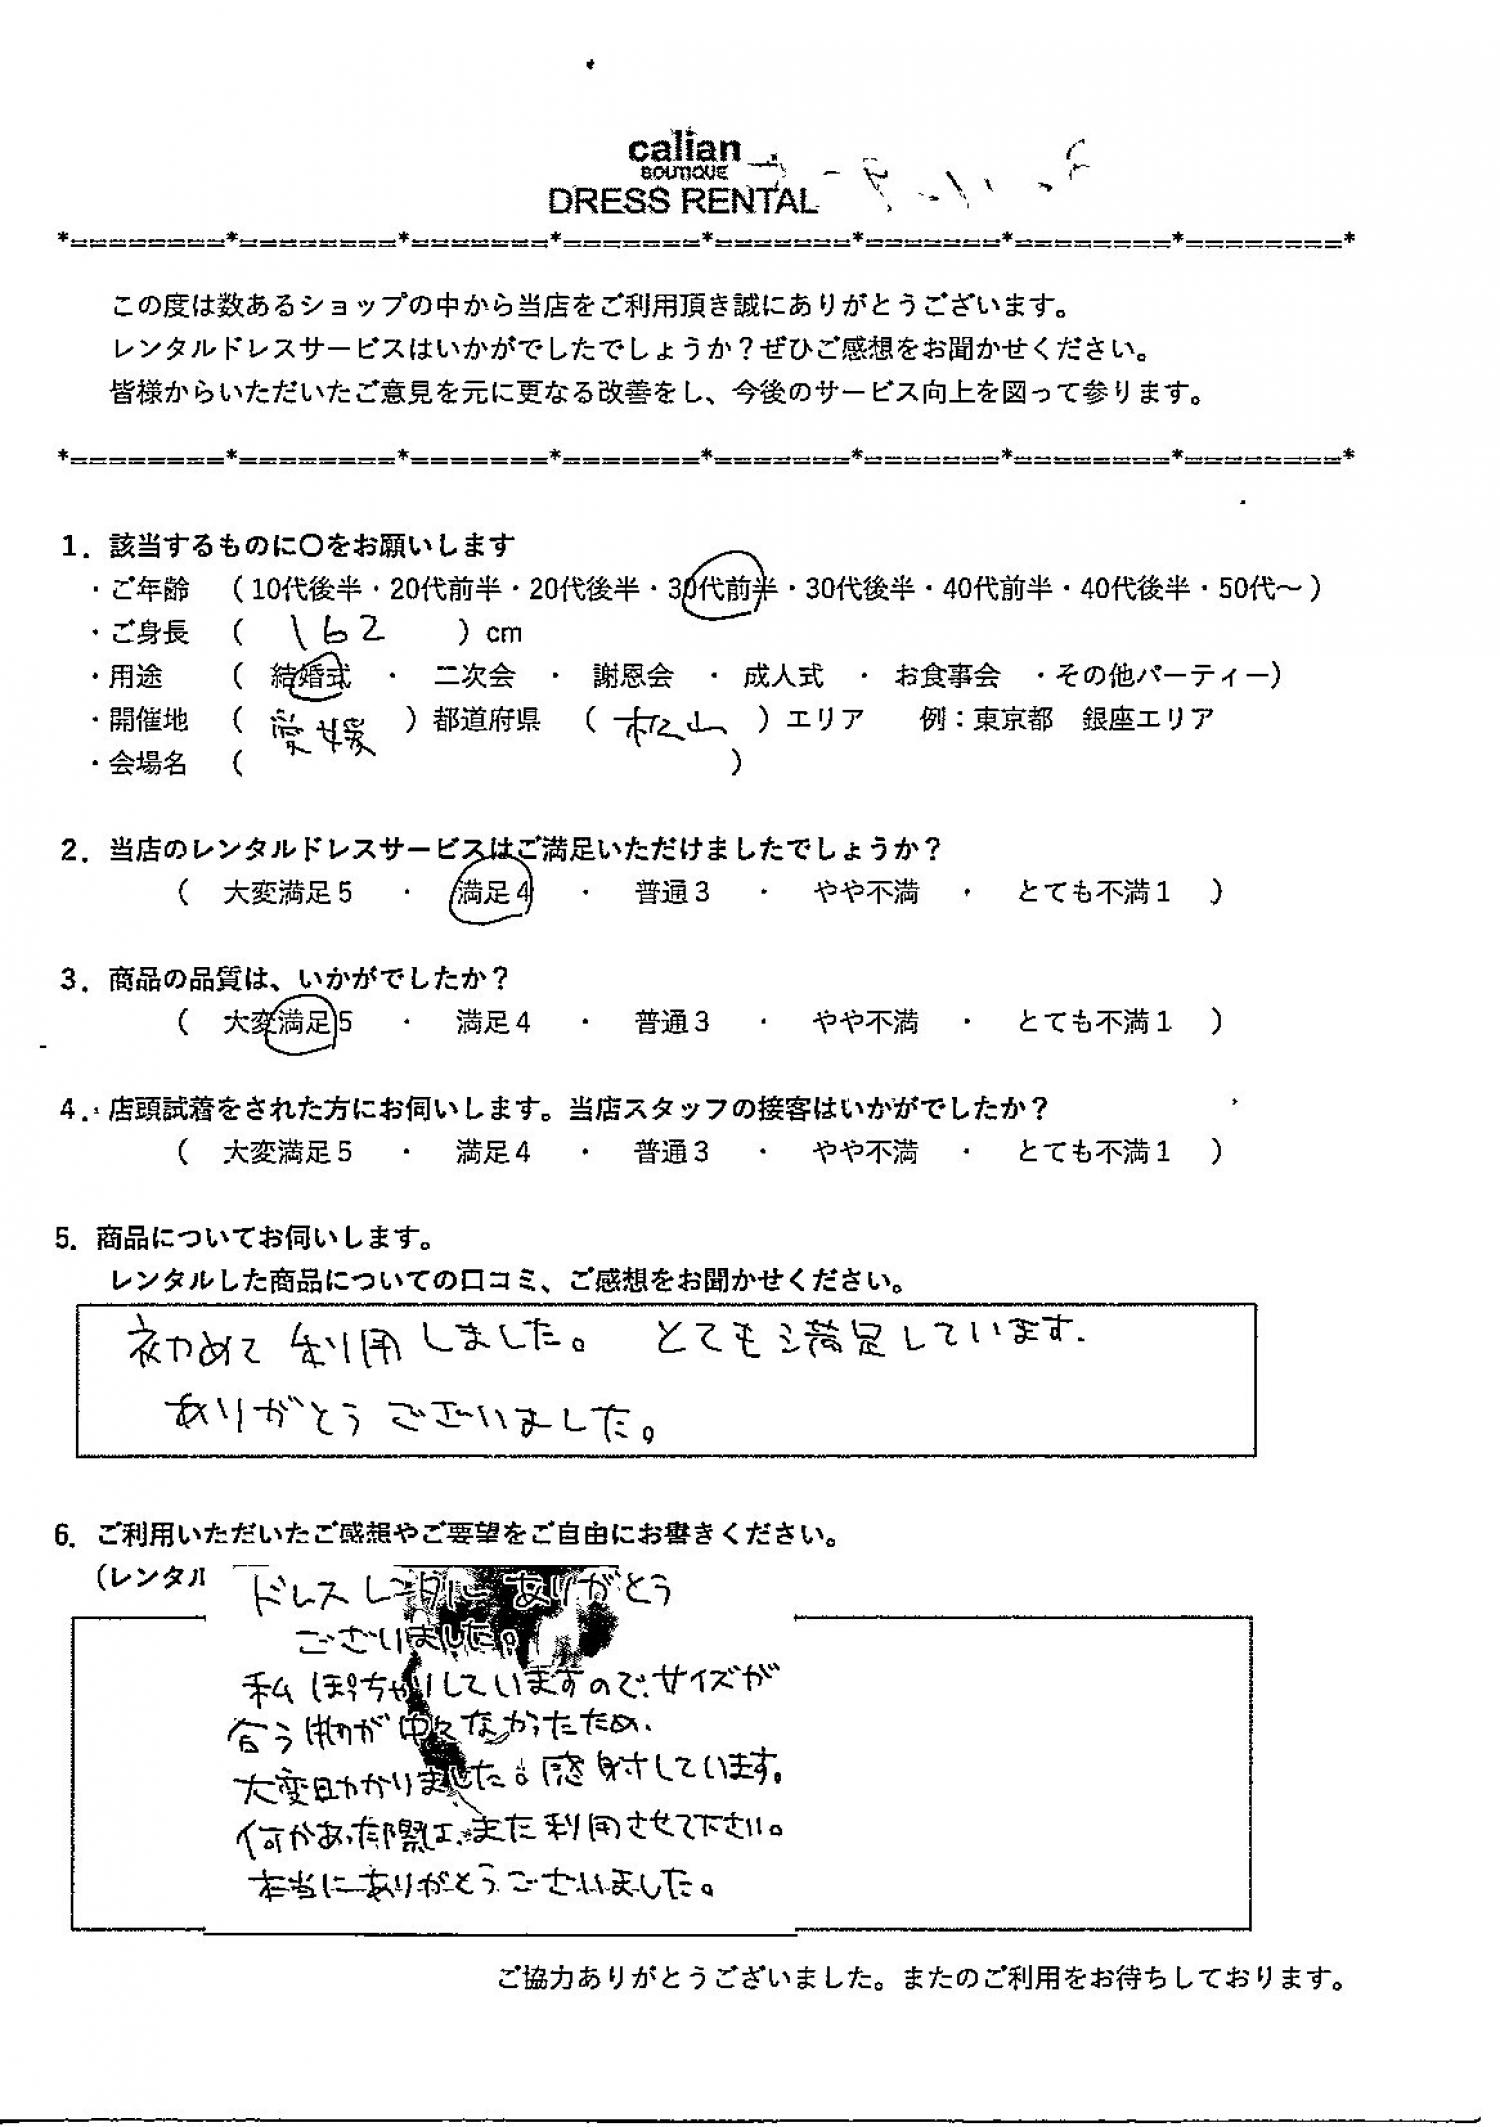 calian
BOUTIQUE
DRESS RENTAL
*========*========*=======*=======*=======*=======*========*========*
この度は数あるショップの中から当店をご利用頂き誠にありがとうございます。
レンタルドレスサービスはいかがでしたでしょうか？ぜひご感想をお聞かせください。
皆様からいただいたご意見を元に更なる改善をし、今後のサービス向上を図って参ります。
*========*========*=======*=======*=======*=======*========*========*
1．該当するものに〇をお願いします
・ご年齢　（10代後半・20代前半・20代後半・30代前半・30代後半・40代前半・40代後半・50代～）
・ご身長　（　162　）cm
・用途　（　結婚式　・　二次会　・　謝恩会　・　成人式　・　お食事会　・その他パーティー）
・開催地　（　愛媛　）都道府県　（　松山　）エリア　例：東京都　銀座エリア
・会場名　（　　　）
2．当店のレンタルドレスサービスはご満足いただけましたでしょうか？
（　大変満足5　・　満足4　・　普通3　・　やや不満　・　とても不満1　）
3．商品の品質は、いかがでしたか？
（　大変満足5　・　満足4　・　普通3　・　やや不満　・　とても不満1　）
4．店頭試着をされた方にお伺いします。当店スタッフの接客はいかがでしたか？
（　大変満足5　・　満足4　・　普通3　・　やや不満　・　とても不満1　）
5．商品についてお伺いします。
レンタルした商品についての口コミ、ご感想をお聞かせください。
初めて利用しました。とても満足しています.
ありがとうございました。
6．ご利用いただいたご感想やご要望をご自由にお書きください。
（レンタル
ドレスレンタルありがとう
ございました。
私ぽっちゃりしていますので、サイズが
合う物が中々なかったため、
大変助かりました。感謝しています。
何かあった際は、また利用させて下さい。
本当にありがとうございました。
ご協力ありがとうございました。またのご利用をお待ちしております。